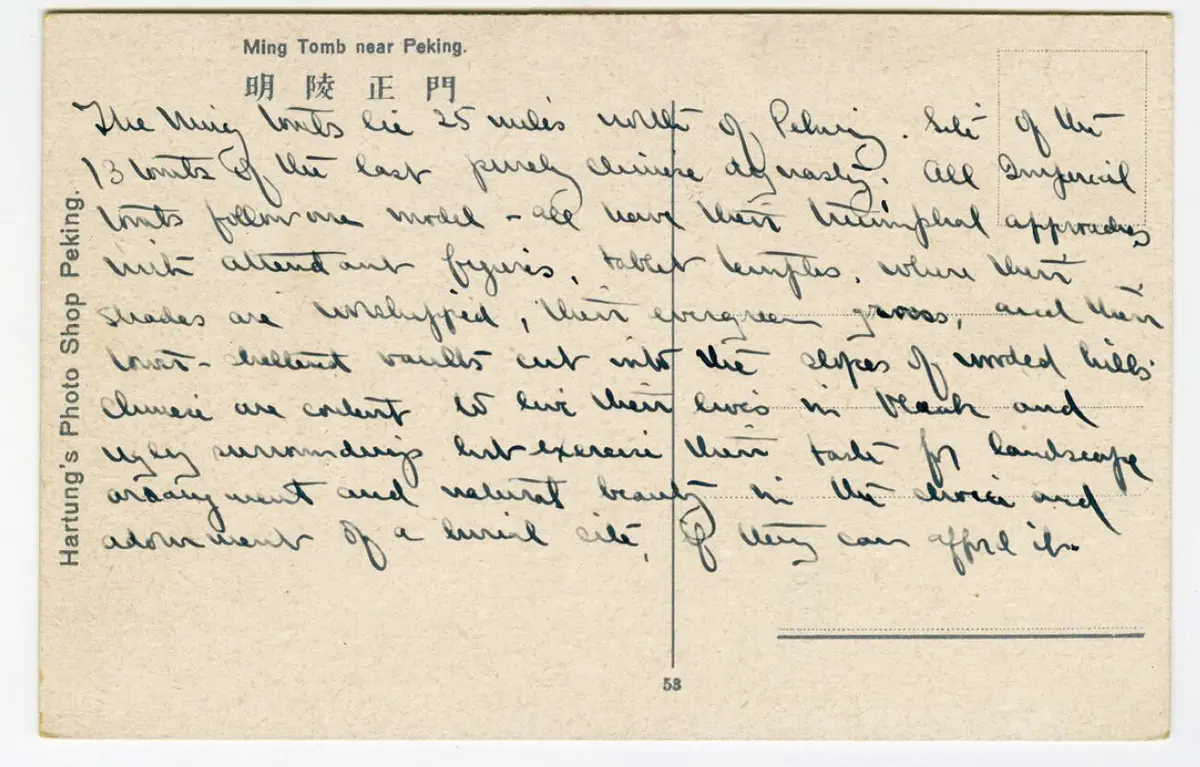 Ming Tomb near Peking.
明陵正門
The Ming tombs lie 25 miles north of Peking. Site of the
13 tombs of the last purely chinese dynasty. All Imperial
tombs follow one model - all have their triumphal approaches
with attendant figures, tablet temples, where their
shades are worshipped, their evergreen groves, and their
tower-sheltered vaults cut into the slopes of wooded hills
Chinese are content to live their lives in bleak and
ugly surroundings but exercise their taste for landscape
arrangement and natural beauty in the choice and
adornment of a burial site, if they can afford it.
Hartung's Photo Shop Peking.
53